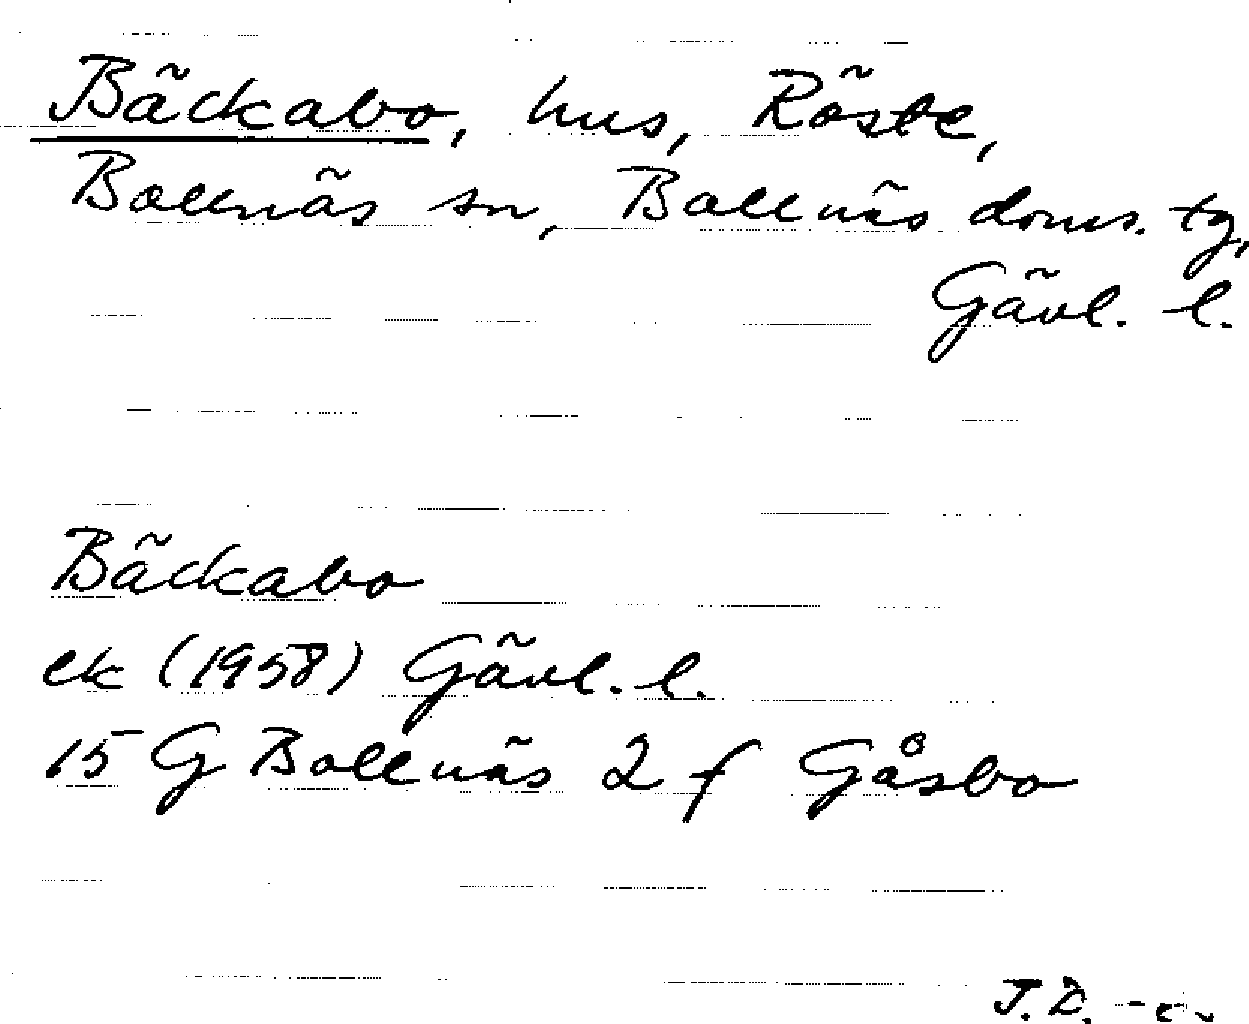 Bäckabo, hus, Röste,
Bollnäs sn, Bollnäs doms. tg,
Gävl. l.
Bäckabo
ek (1958) Gävl. l.
15 G Bollnäs 2 f Gåsbo
J.D.